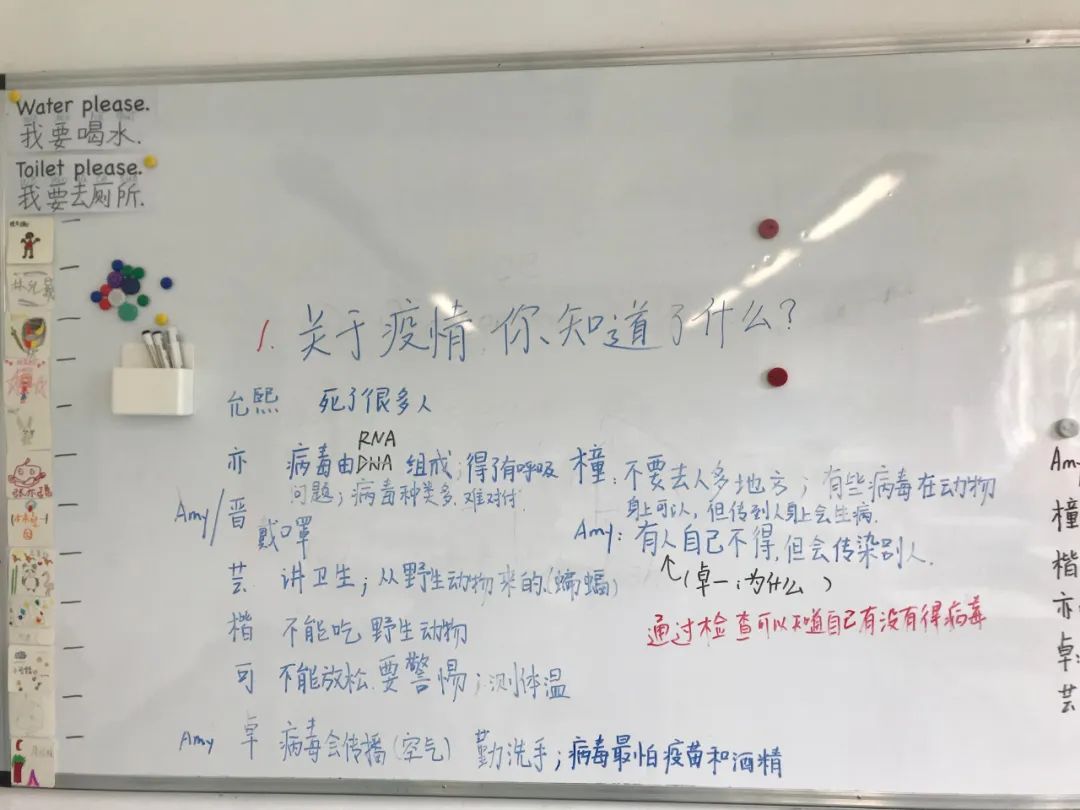 Water please.
我要喝水.
Toilet please.
我要去厕所.
1. 关于疫情,你知道了什么?
允熙 死了很多人
亦 病毒由 RNA
DNA 组成;得了有呼吸
问题;病毒种类多.难对付.
Amy/晋 戴口罩
芸. 讲卫生;从野生动物来的.(蝙蝠)
楷 不能吃野生动物
可 不能放松.要警惕;测体温
Amy 卓 病毒会传播(空气) 勤洗手;病毒最怕疫苗和酒精
橦:不要去人多地方;有些病毒在动物
身上可以,但传到人身上会生病.
Amy:有人自己不得,但会传染别人.
↑(卓一:为什么 )
通过检查可以知道自己有没有得病毒
Amy
橦
楷
亦
卓
芸